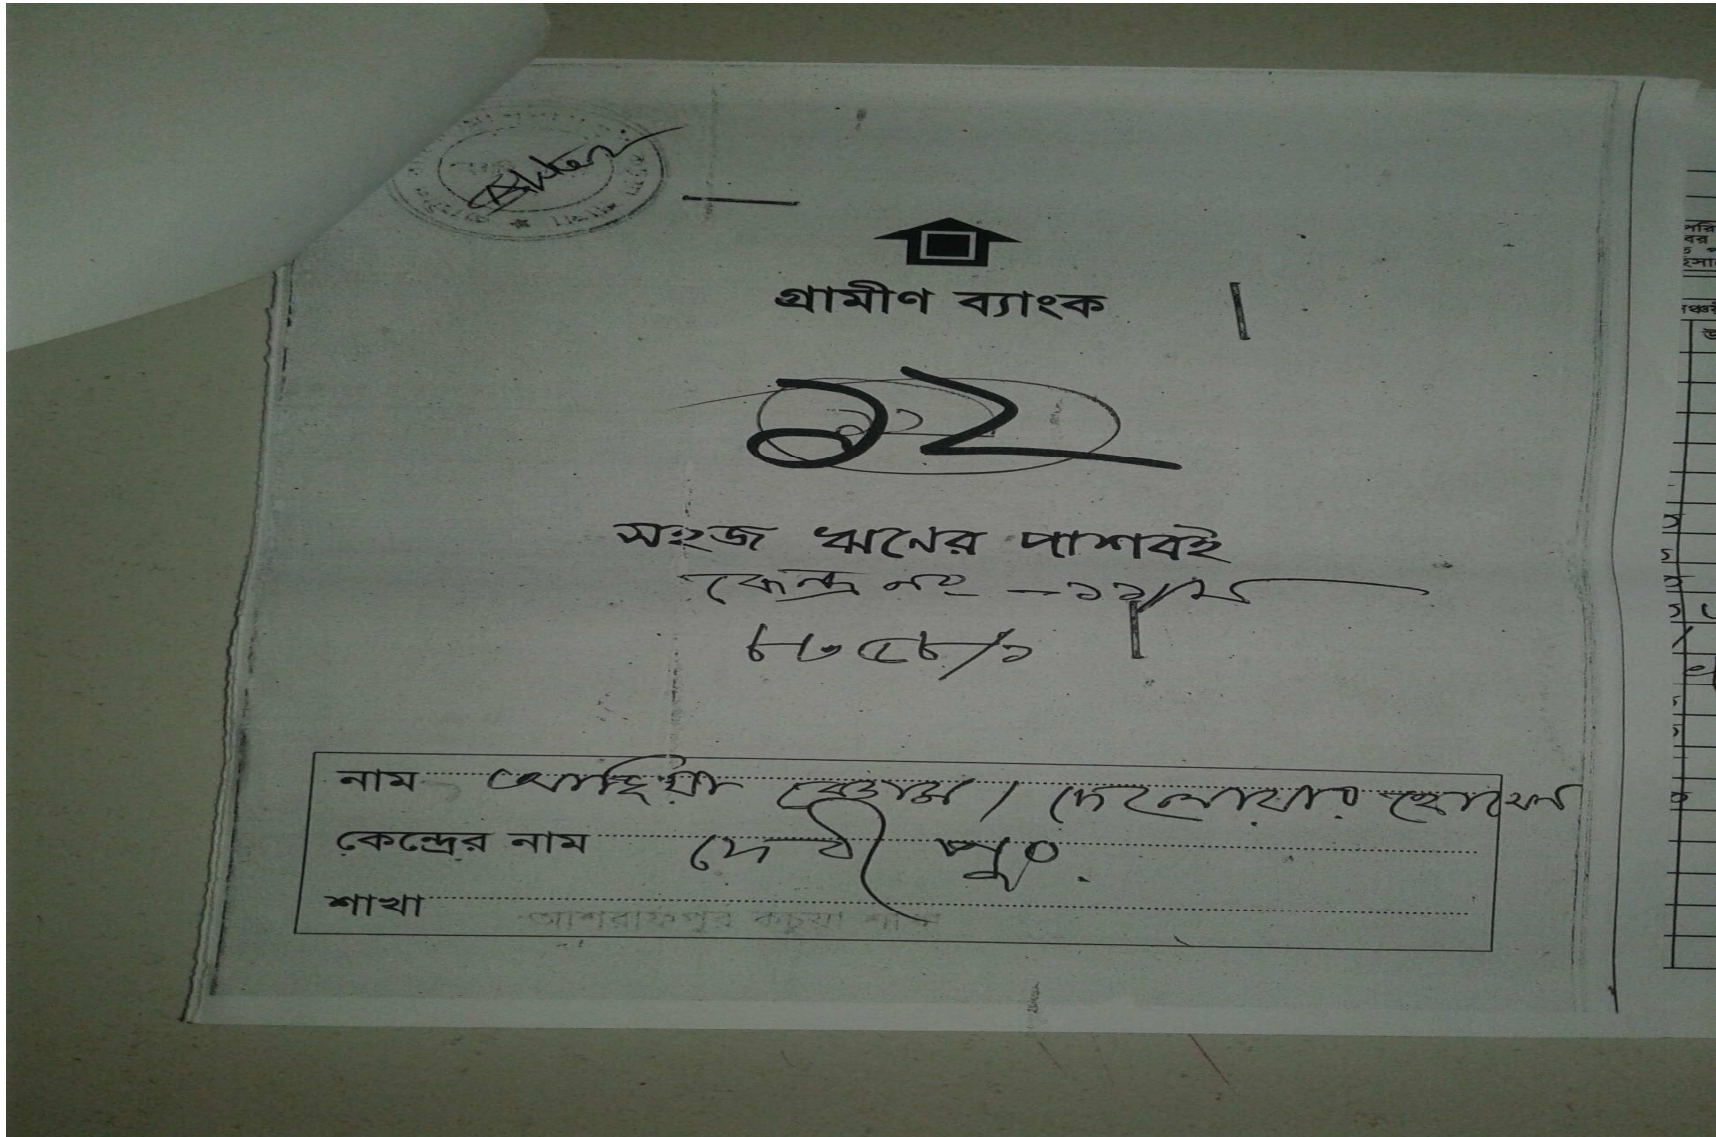 গ্রামীণ ব্যাংক
১২
সহজ ঋনের পাশবই
কেন্দ্র নং - ১১/ম
৮৩৫৮/১
নাম বেগম / দেলোয়ার হোসেন
কেন্দ্রের নাম দেবীপুর
শাখা আশরাফপুর কচুয়া শাখা